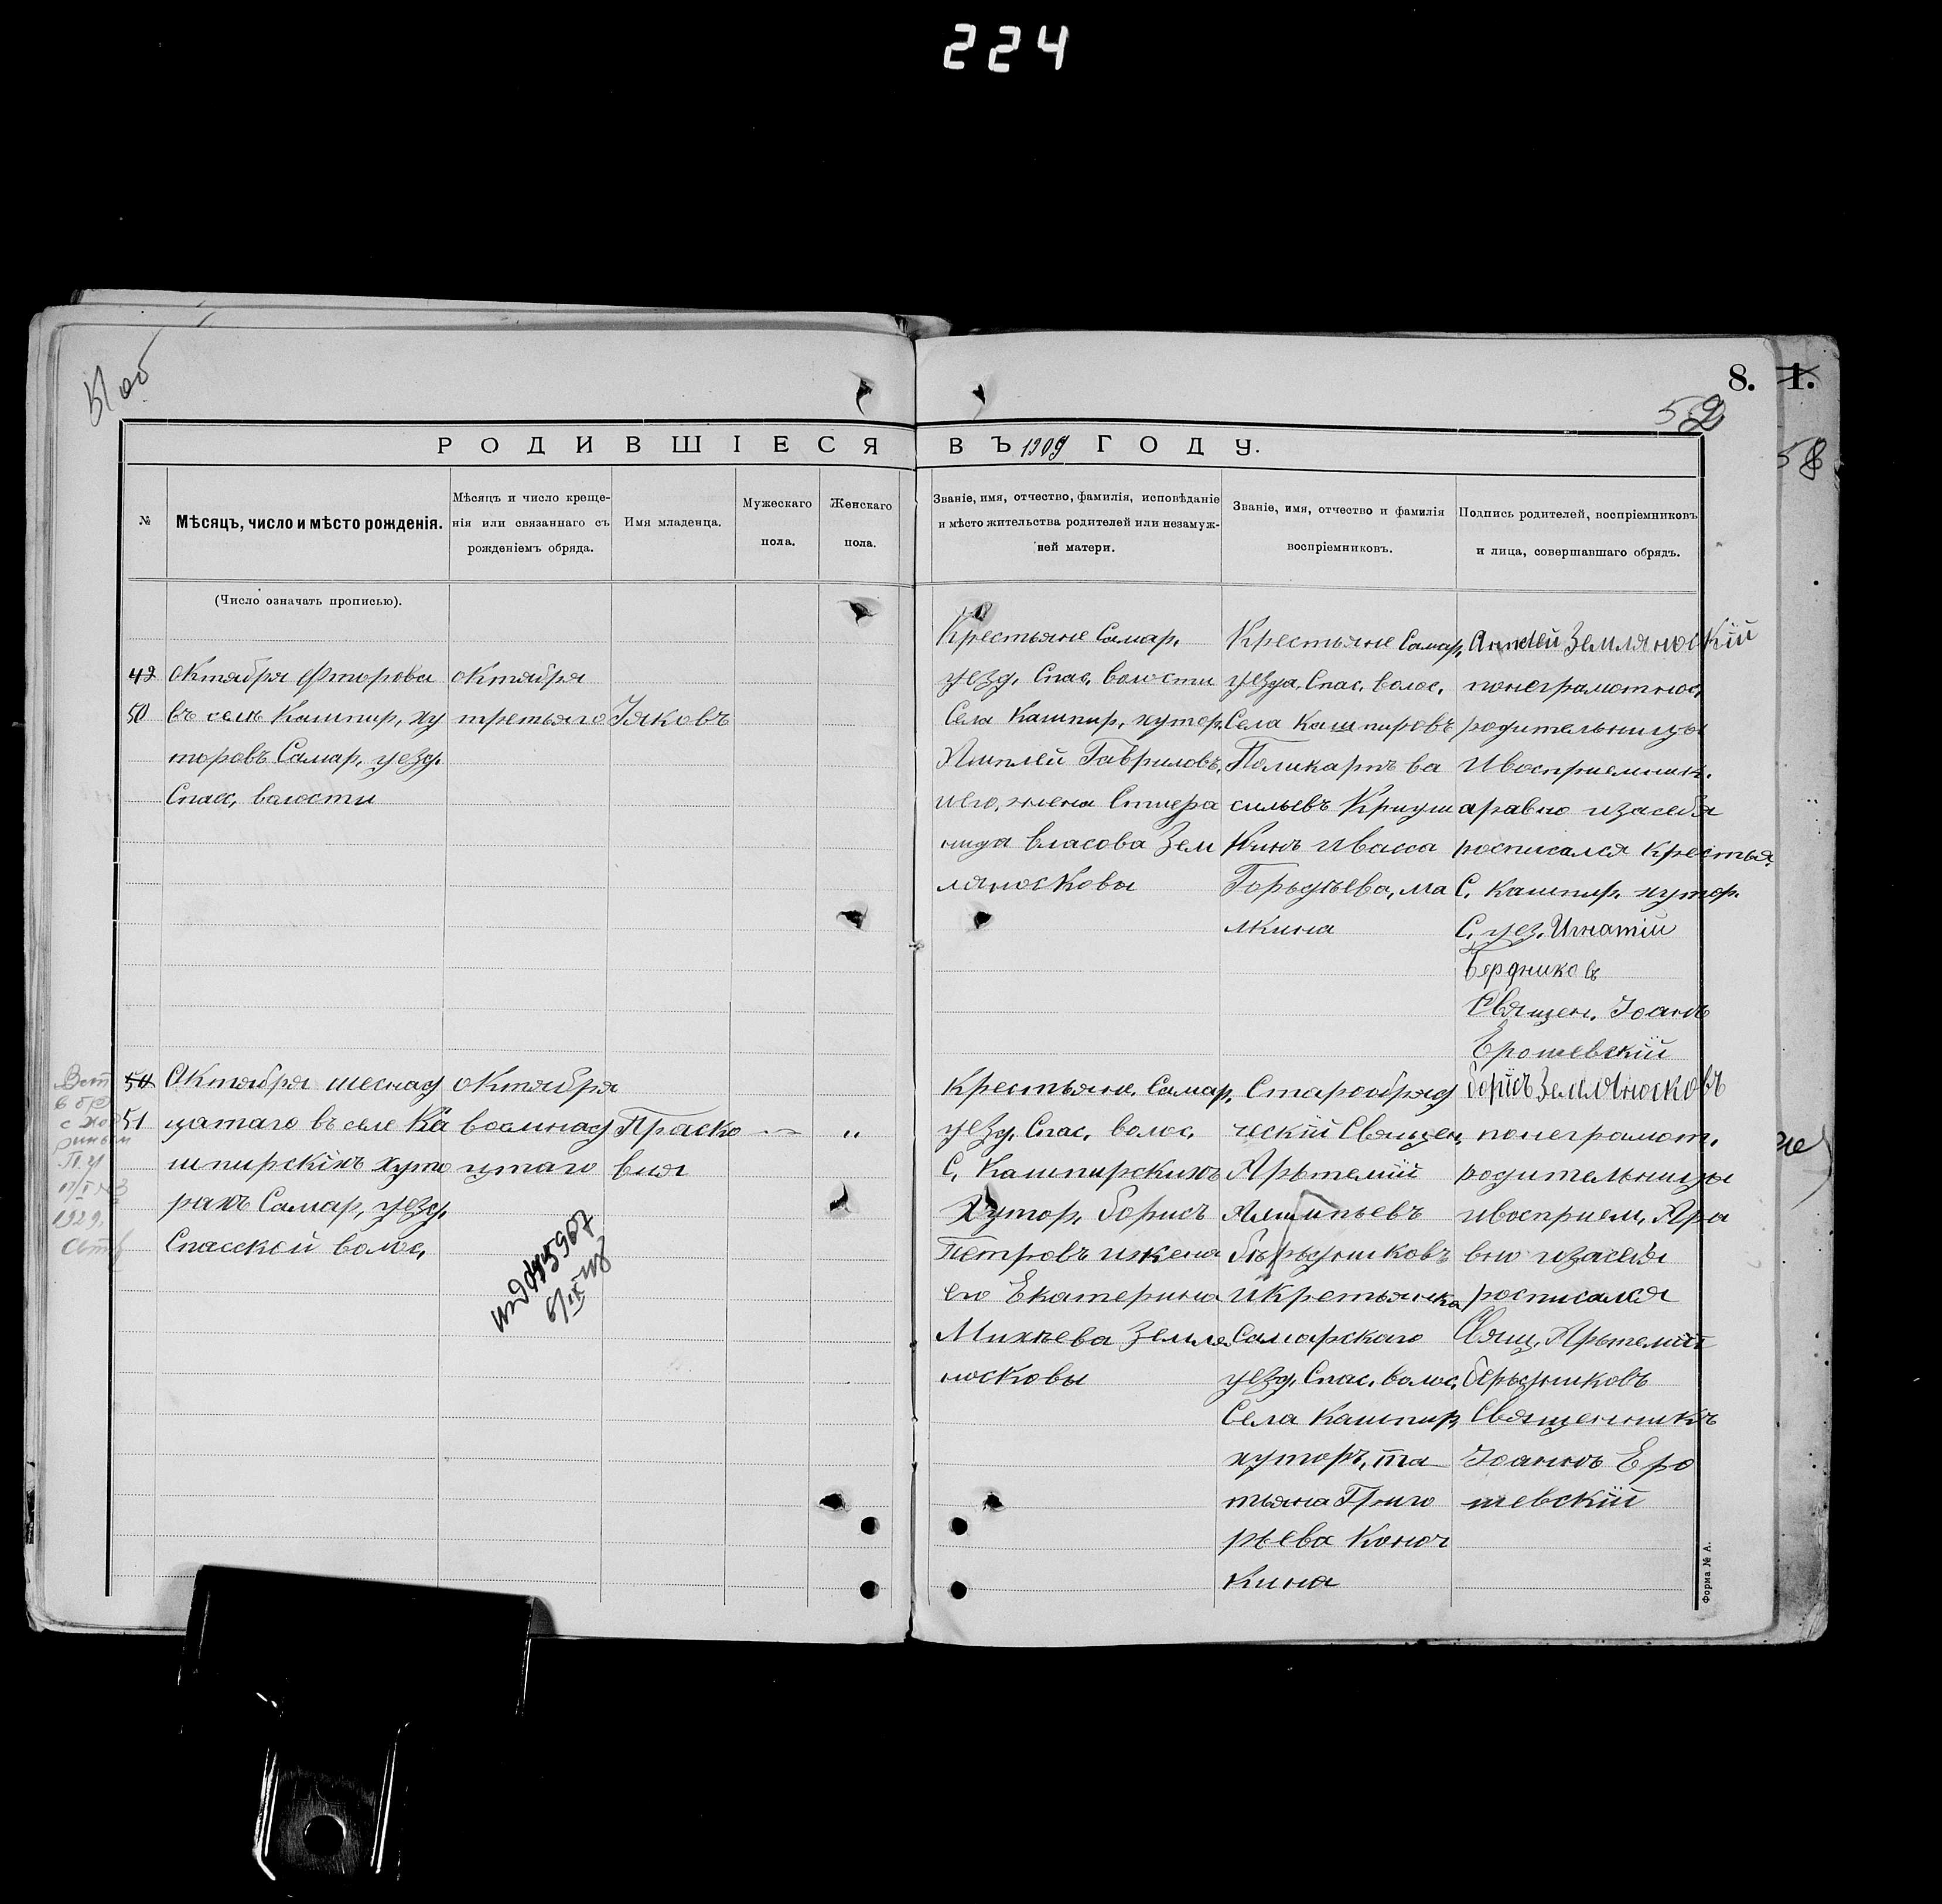 224
51 об
8. 1.
52
58
РОДИВШІЕСЯ ВЪ 1909 ГОДУ.
№
Мѣсяцъ, число и мѣсто рожденія.
Мѣсяцъ и число креще-
нія или связаннаго съ
рожденіемъ обряда.
Имя младенца.
Мужескаго
пола.
Женскаго
пола.
Званіе, имя, отчество, фамилія, исповѣданіе
и мѣсто жительства родителей или незамуж-
ней матери.
Званіе, имя, отчество и фамилія
воспріемниковъ.
Подпись родителей, воспріемниковъ
и лица, совершавшаго обрядъ.
(Число означать прописью).
49
50
Октября Фторова
въ селѣ Кашпир, ху
торовъ Самар, уезд.
Спасс, валости
октября
третьяго
Іяковъ
Крестьяне Самар,
уезд, Спас, валости
Села Кашпир, хутор,
Гавриловъ,
власова Зем
ляносковы
Крестьяне Самар,
уезда, Спас, волос,
Села Кашпировъ
Поликарпъ ва
сильевъ
Кинъ Ивасса
ма
лкина
понеграмотнос,
родительницы
Ивосприемник.
аравно изасебя
росписался Крестья.
С, Кашпир, хутор.
С, уез, Игнатій
Бердниковъ
Священ, Іоанъ
Ерошевскій
50
51
Октября шеснад
цатаго въ селе Ка
шпирскіхъ хуто
рахъ Самар, уезд,
Спасской волос,
октября
восемнад
цатаго
Праско
вия
— „
Крестьяне, Самар,
уезд, Спас, волос,
С, Кашпирскихъ
Хутор, Борисъ
Петровъ ижена
его Екатерина
Михѣева Земля
носковы
Старообряд
ческій Священ,
Арьтемій
бѣрьдниковъ
Икретьянка
Самарскаго
уезд, Спас, волос,
Села Кашпир,
хуторъ, та
тьяна Григо
рьева Коноч
кина
Борисъ Земляносковъ
понеграмот,
родительницы
ивосприем, Ара
вно изасебя
росписался
Свящ, Арьтемій
берьдниковъ
Священникъ
Іоаннъ Еро
шевскій
1929
Форма № А.